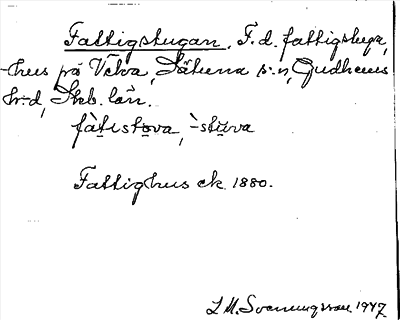 Fattigstugan, F.d. fattigstuga,
-hus på Vilva, Sätuna s:n, Gudhems
h:d, Skb. län.
fàtistova, `-stuva
Fattighus ck 1880.
L M. Svenungsson 1947